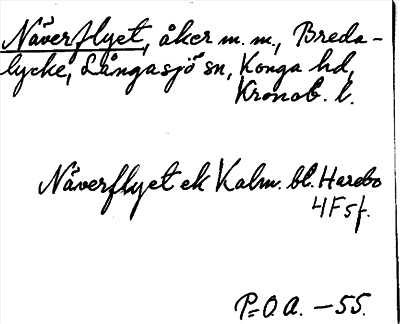 Näverflyet, åker m.m., Breda-
lycke, Långasjö sn, Konga hd,
Kronob. l.
Näverflyet ek Kalm. bl. Harebo
4F5f.
P=O.A. -55.